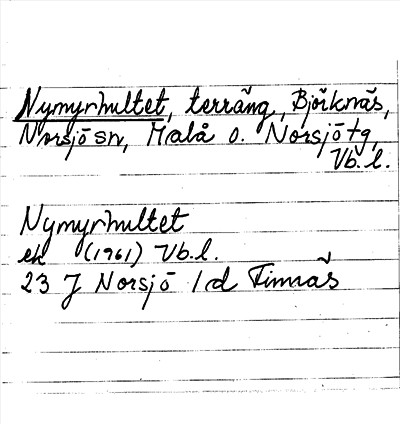 Nymyrhultet, terräng, Björknäs,
Norsjö sn, Malå o. Norsjö tg,
Vb. l.
Nymyrhultet
ek (1961) Vb. l.
23 J Norsjö 1d Finnäs